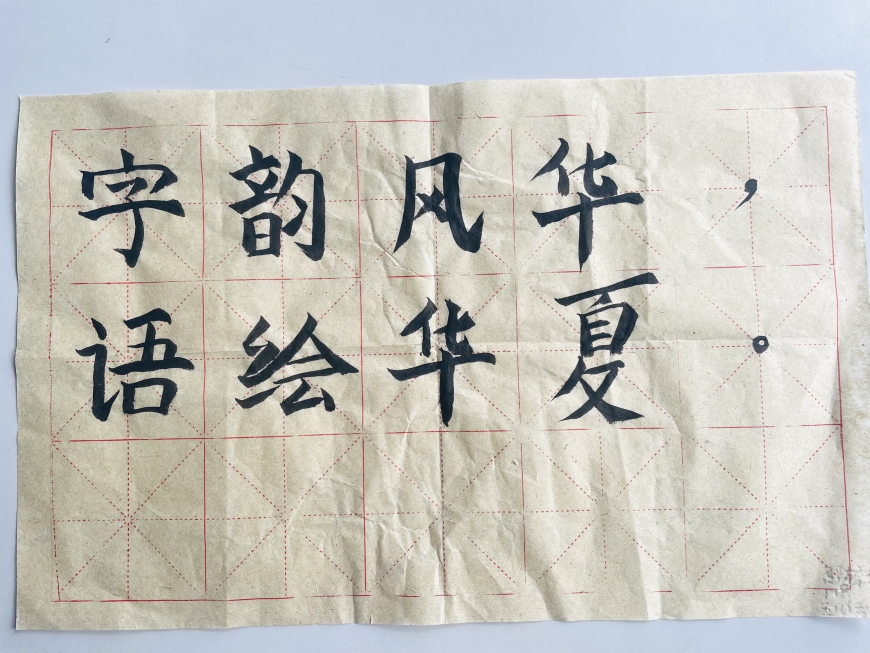 字韵风华，
语绘华夏。